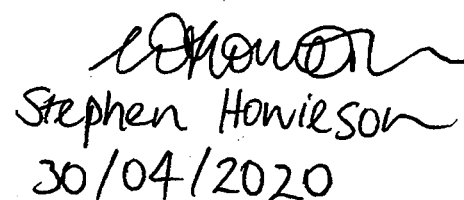 Stephen Howieson
30/04/2020